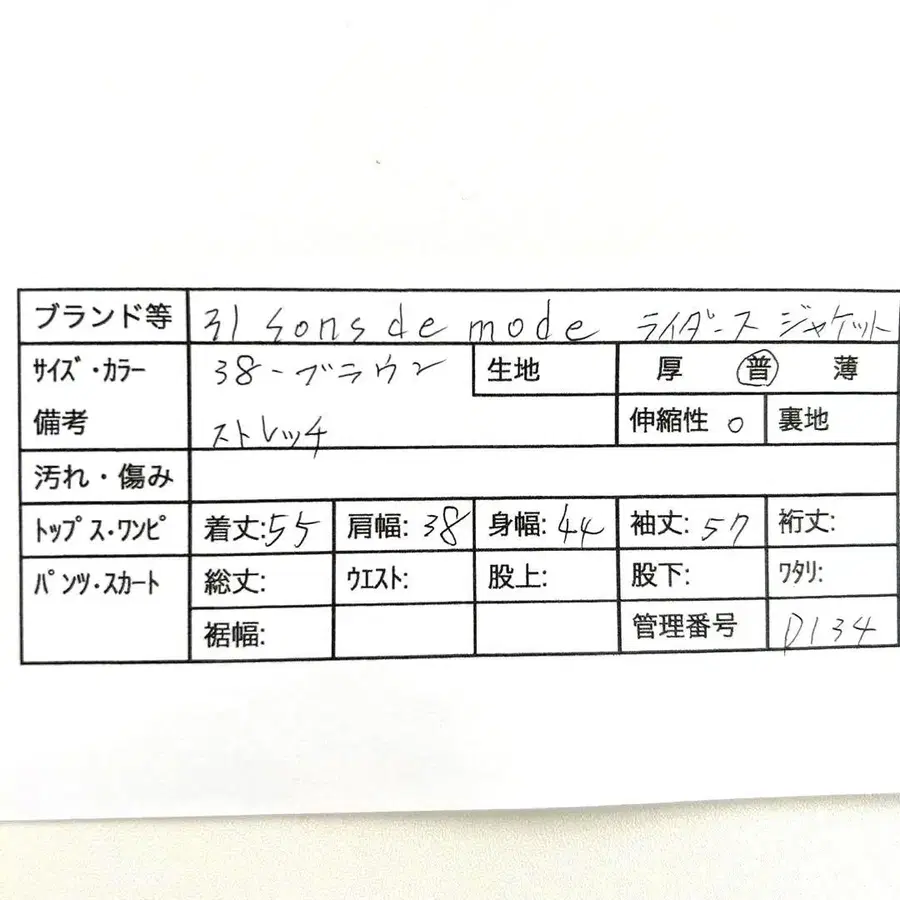 ブランド等 31 Sons de mode ライダース ジャケット
サイズ・カラー 38-ブラウン 生地 厚 普 薄
備考 ストレッチ 伸縮性 ○ 裏地
汚れ・傷み
トップス・ワンピ 着丈:55 肩幅:38 身幅:44 袖丈:57 裄丈:
パンツ・スカート 総丈: ウエスト: 股上: 股下: ワタリ:
裾幅: 管理番号 D134